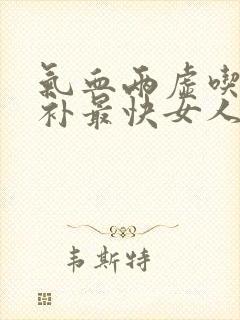 氣血兩虛喫
补最快女人
韦斯特